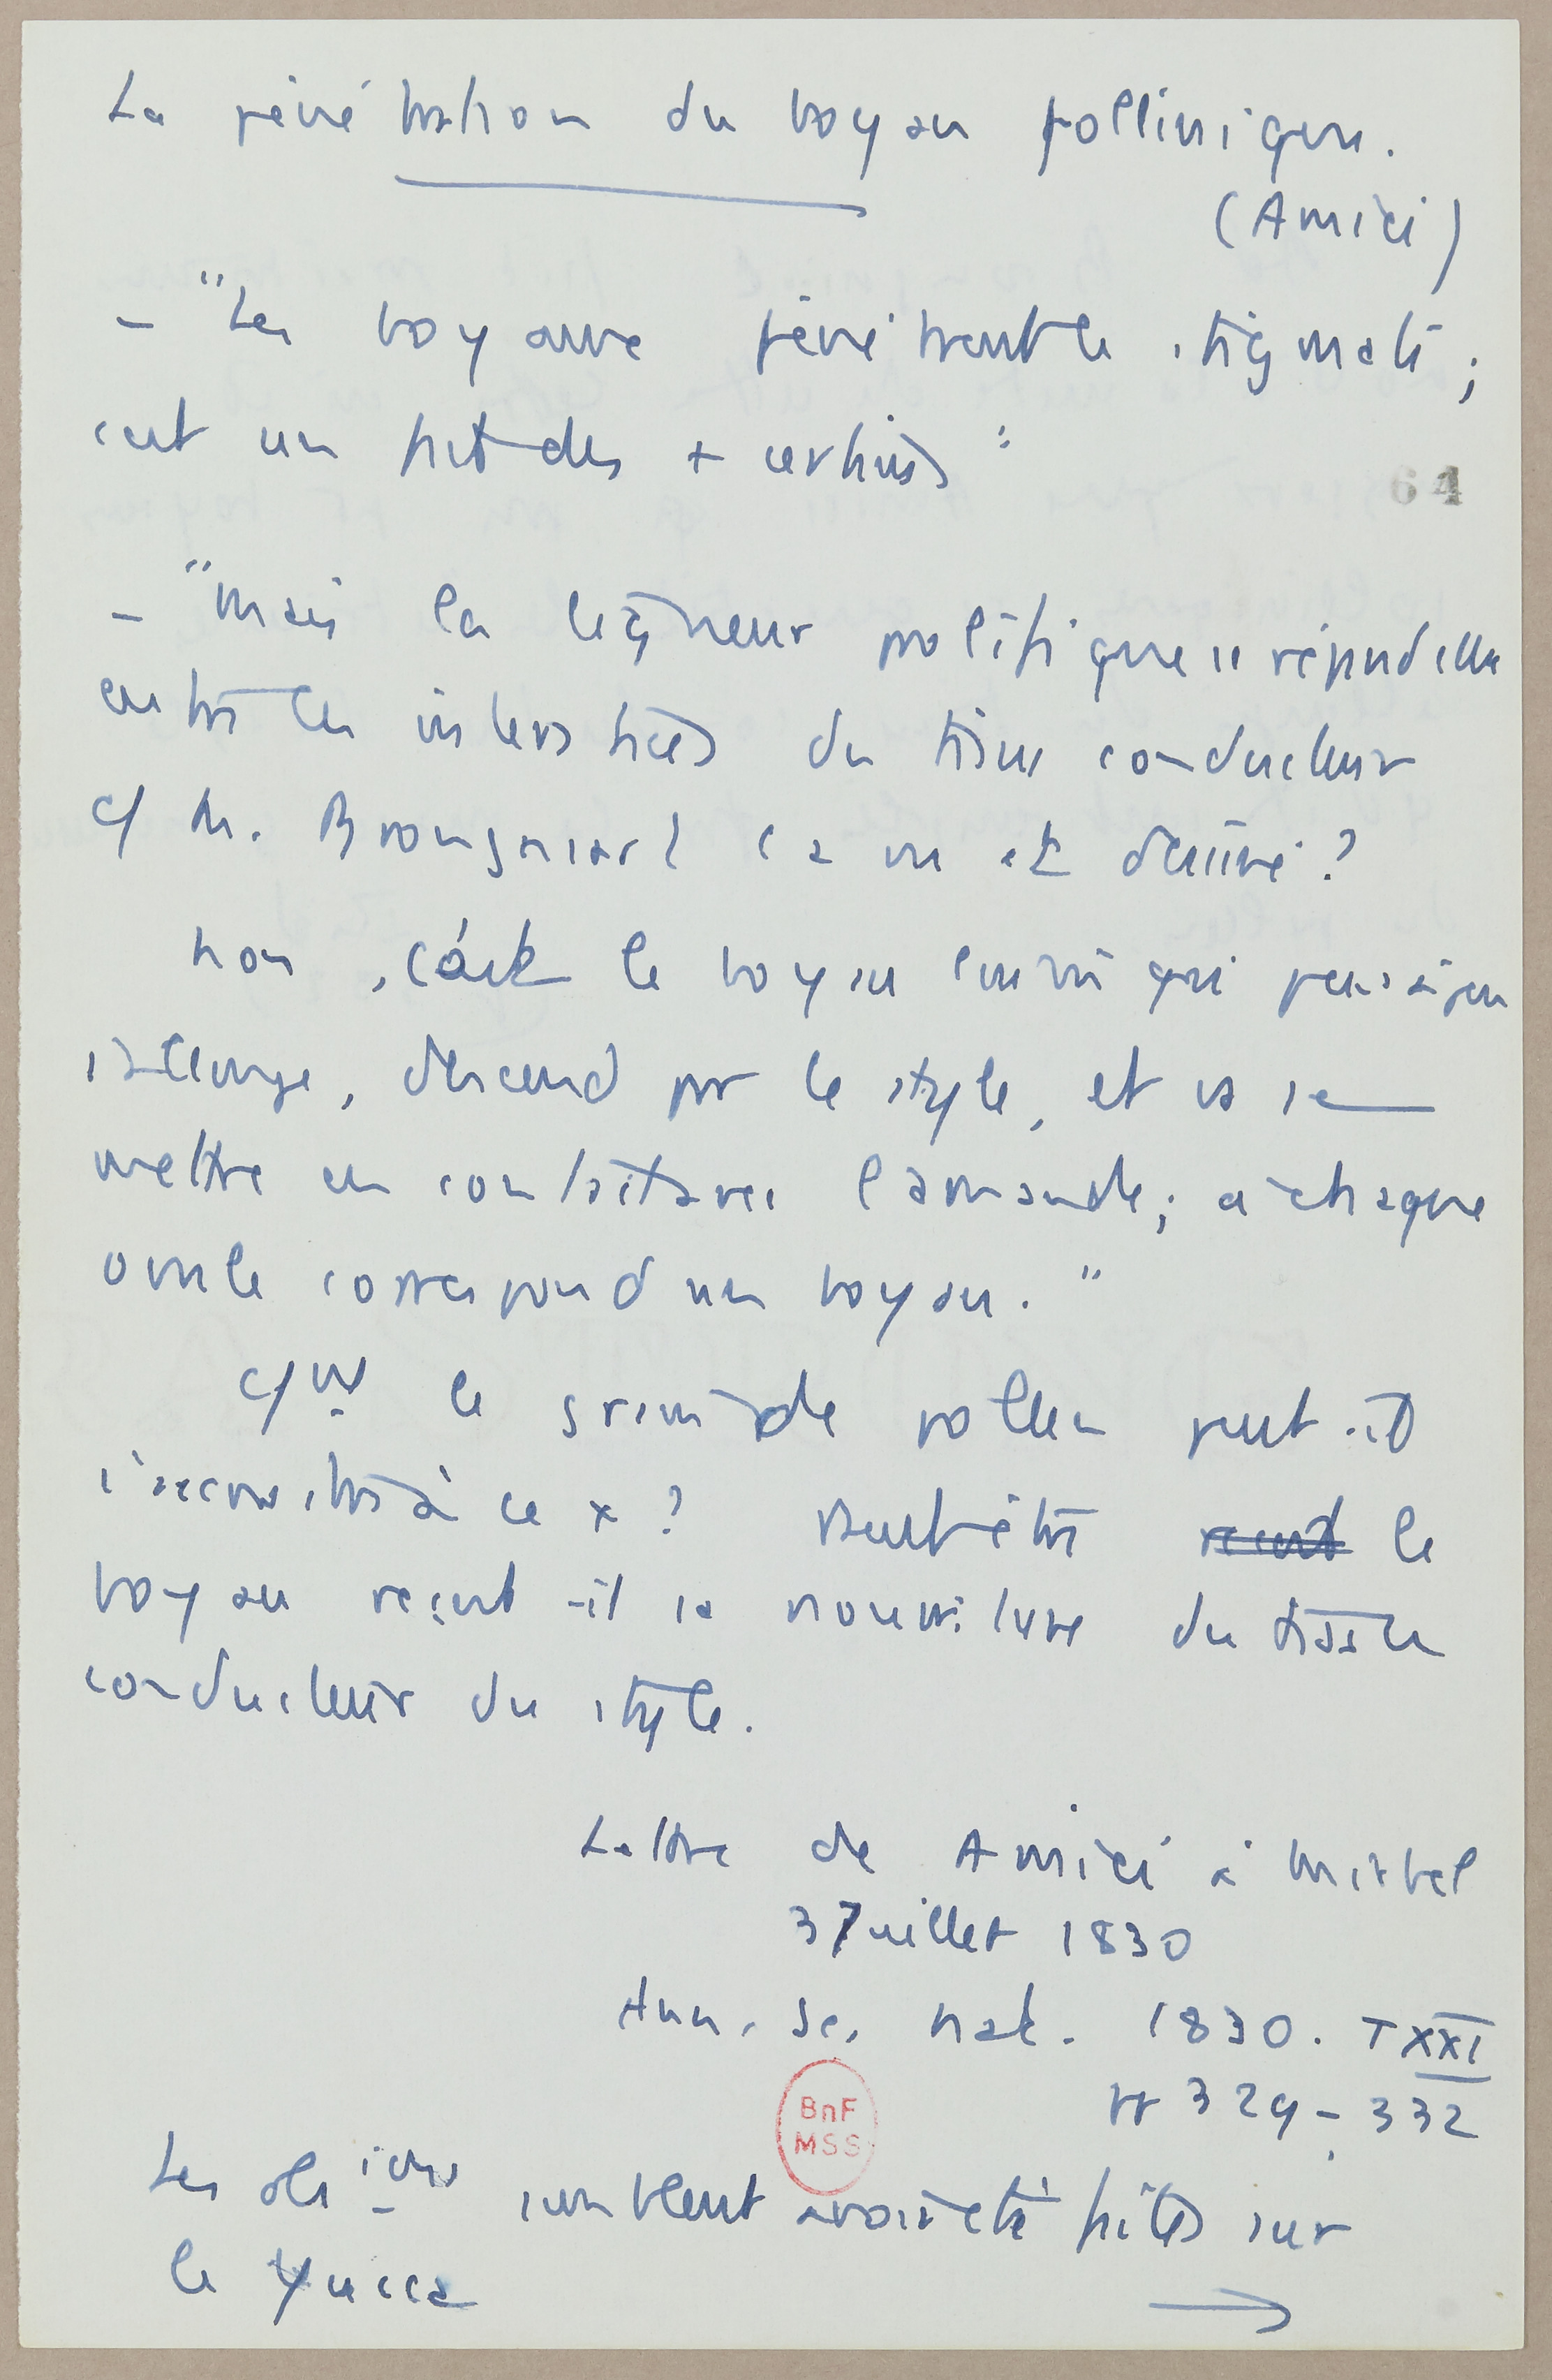 La pénétration du boyau pollinique.
(Amici)
- "Les boyaux pénètrent le stigmate ;
c'est un fait des + certains"
64
- "Mais la liqueur prolifique se répand elle
entre les interstices du tissu conducteur
c/ M. Brongniart l'a vu et dessiné ?
Non, c'est le boyau lui même qui peu à peu
s'allonge, descend par le style, et va se
mettre en contact avec l'amande ; à chaque
ovule correspond un boyau."
c/nt le grain de pollen peut-il
s'accroître à ce x ? Peut-être le
boyau reçoit-il sa nourriture du tissu
conducteur du style.
Lettre de Amici à Mirbel
3 Juillet 1830
Ann. Sc. nat. 1830. T XXI
pp 329-332
BnF
MSS
Les obsions semblent avoir été faites sur
le Yucca →